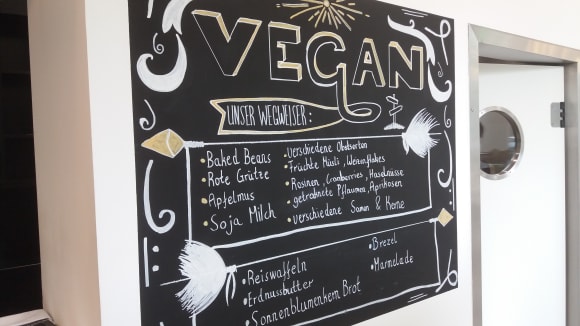 VEGAN
UNSER WEGWEISER:
• Baked Beans
• Rote Grütze
• Apfelmus
• Soja Milch
• verschiedene Obstsorten
• Früchte Müsli, Weizenflakes
• Rosinen, Cranberries, Haselnüsse
getrocknete Pflaumen, Aprikosen
• verschiedene Samen & Kerne
• Reiswaffeln
• Erdnussbutter
• Sonnenblumenkern Brot
• Brezel
• Marmelade